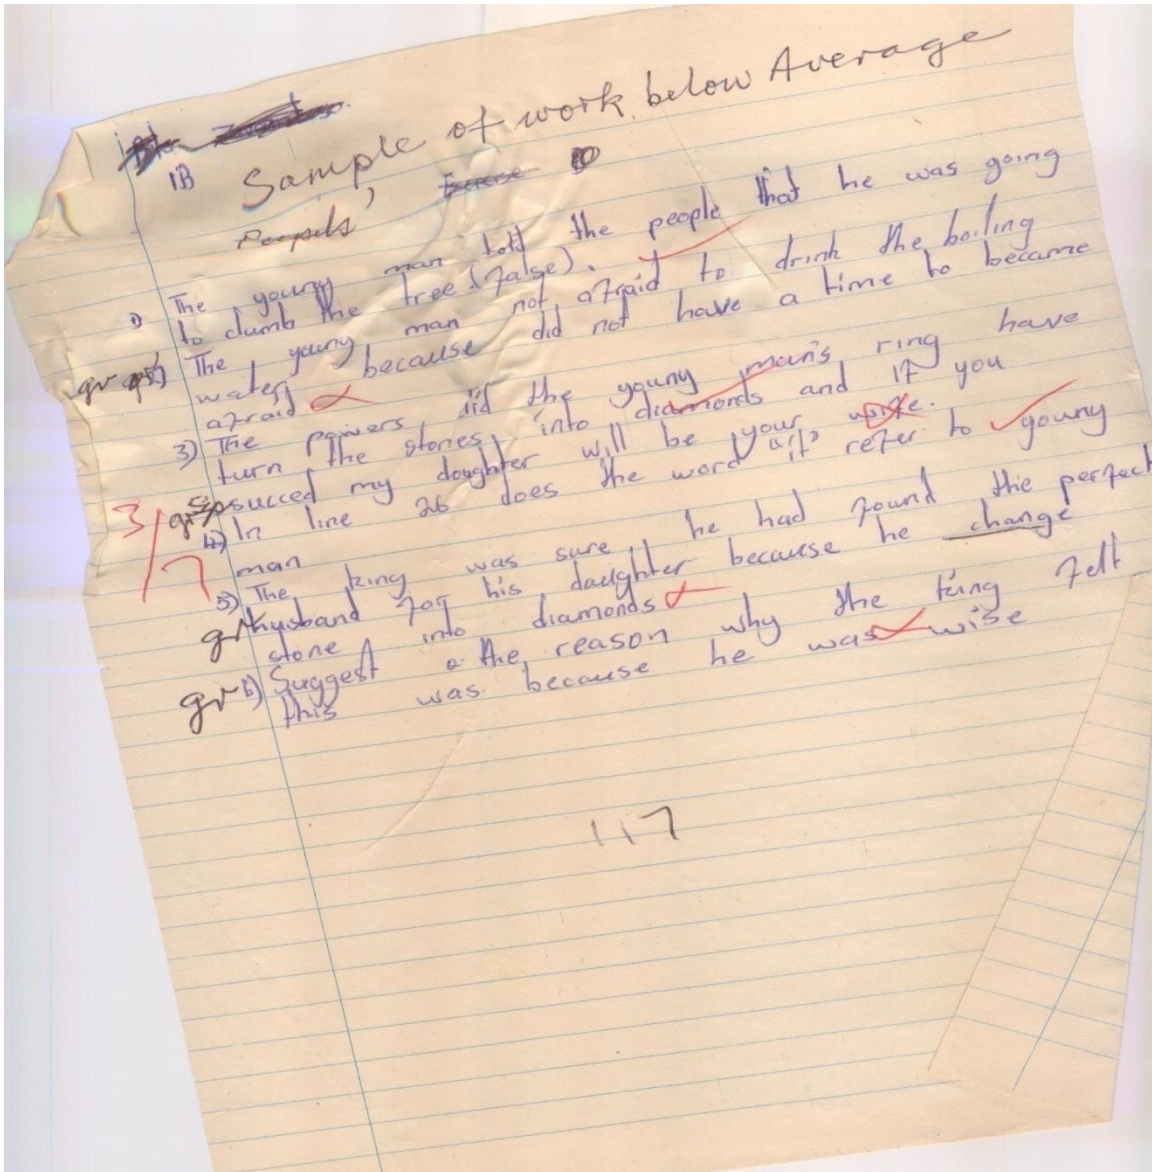 Sample of work below Average
1B
Pupils'
Exercise
1) The young man told the people that he was going
to clumb the tree (false).
gr 2) The young man not afraid to drink the boiling
water because did not have a time to became
afraid
3) The powers did the young man's ring have
turn the stones into diamonds and if you
sp succed my doughter will be your wife.
gr 4) In line 26 does the word it refer to young
man
3/7
5) The king was sure he had found the perfect
gr husband for his daughter because he change
stone into diamonds
gr 6) Suggest the reason why the king felt
this was because he was wise
117